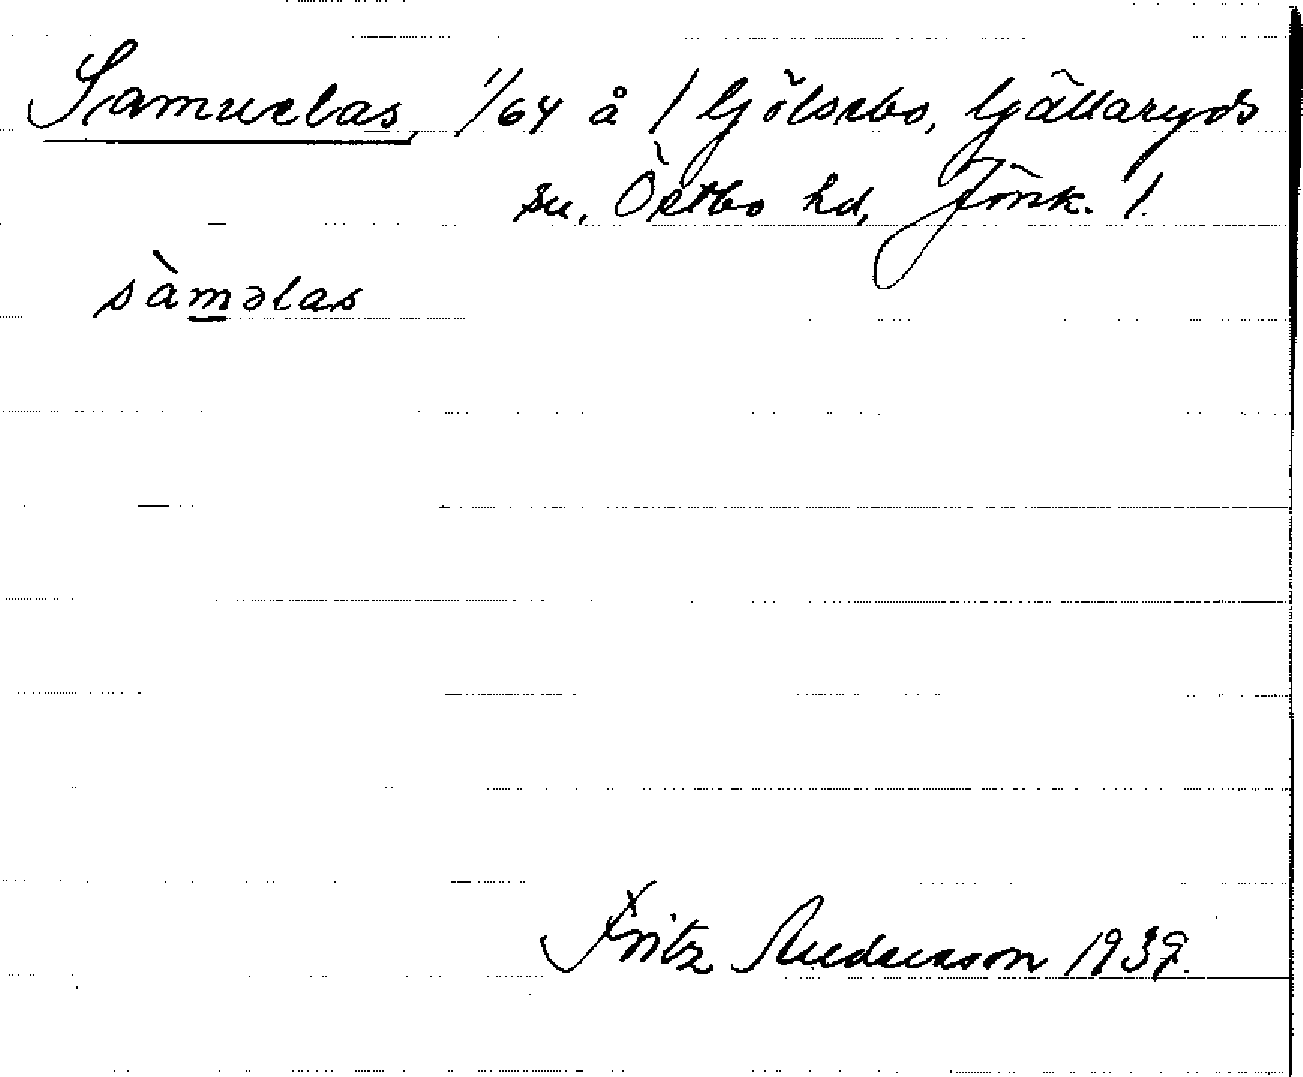 Samuelas, 1/64 å 1 Gjölsebo, Gjällaryds
sn, Östbo hd, Jönk. l.
sàməlas
Fritz Andersson 1939.